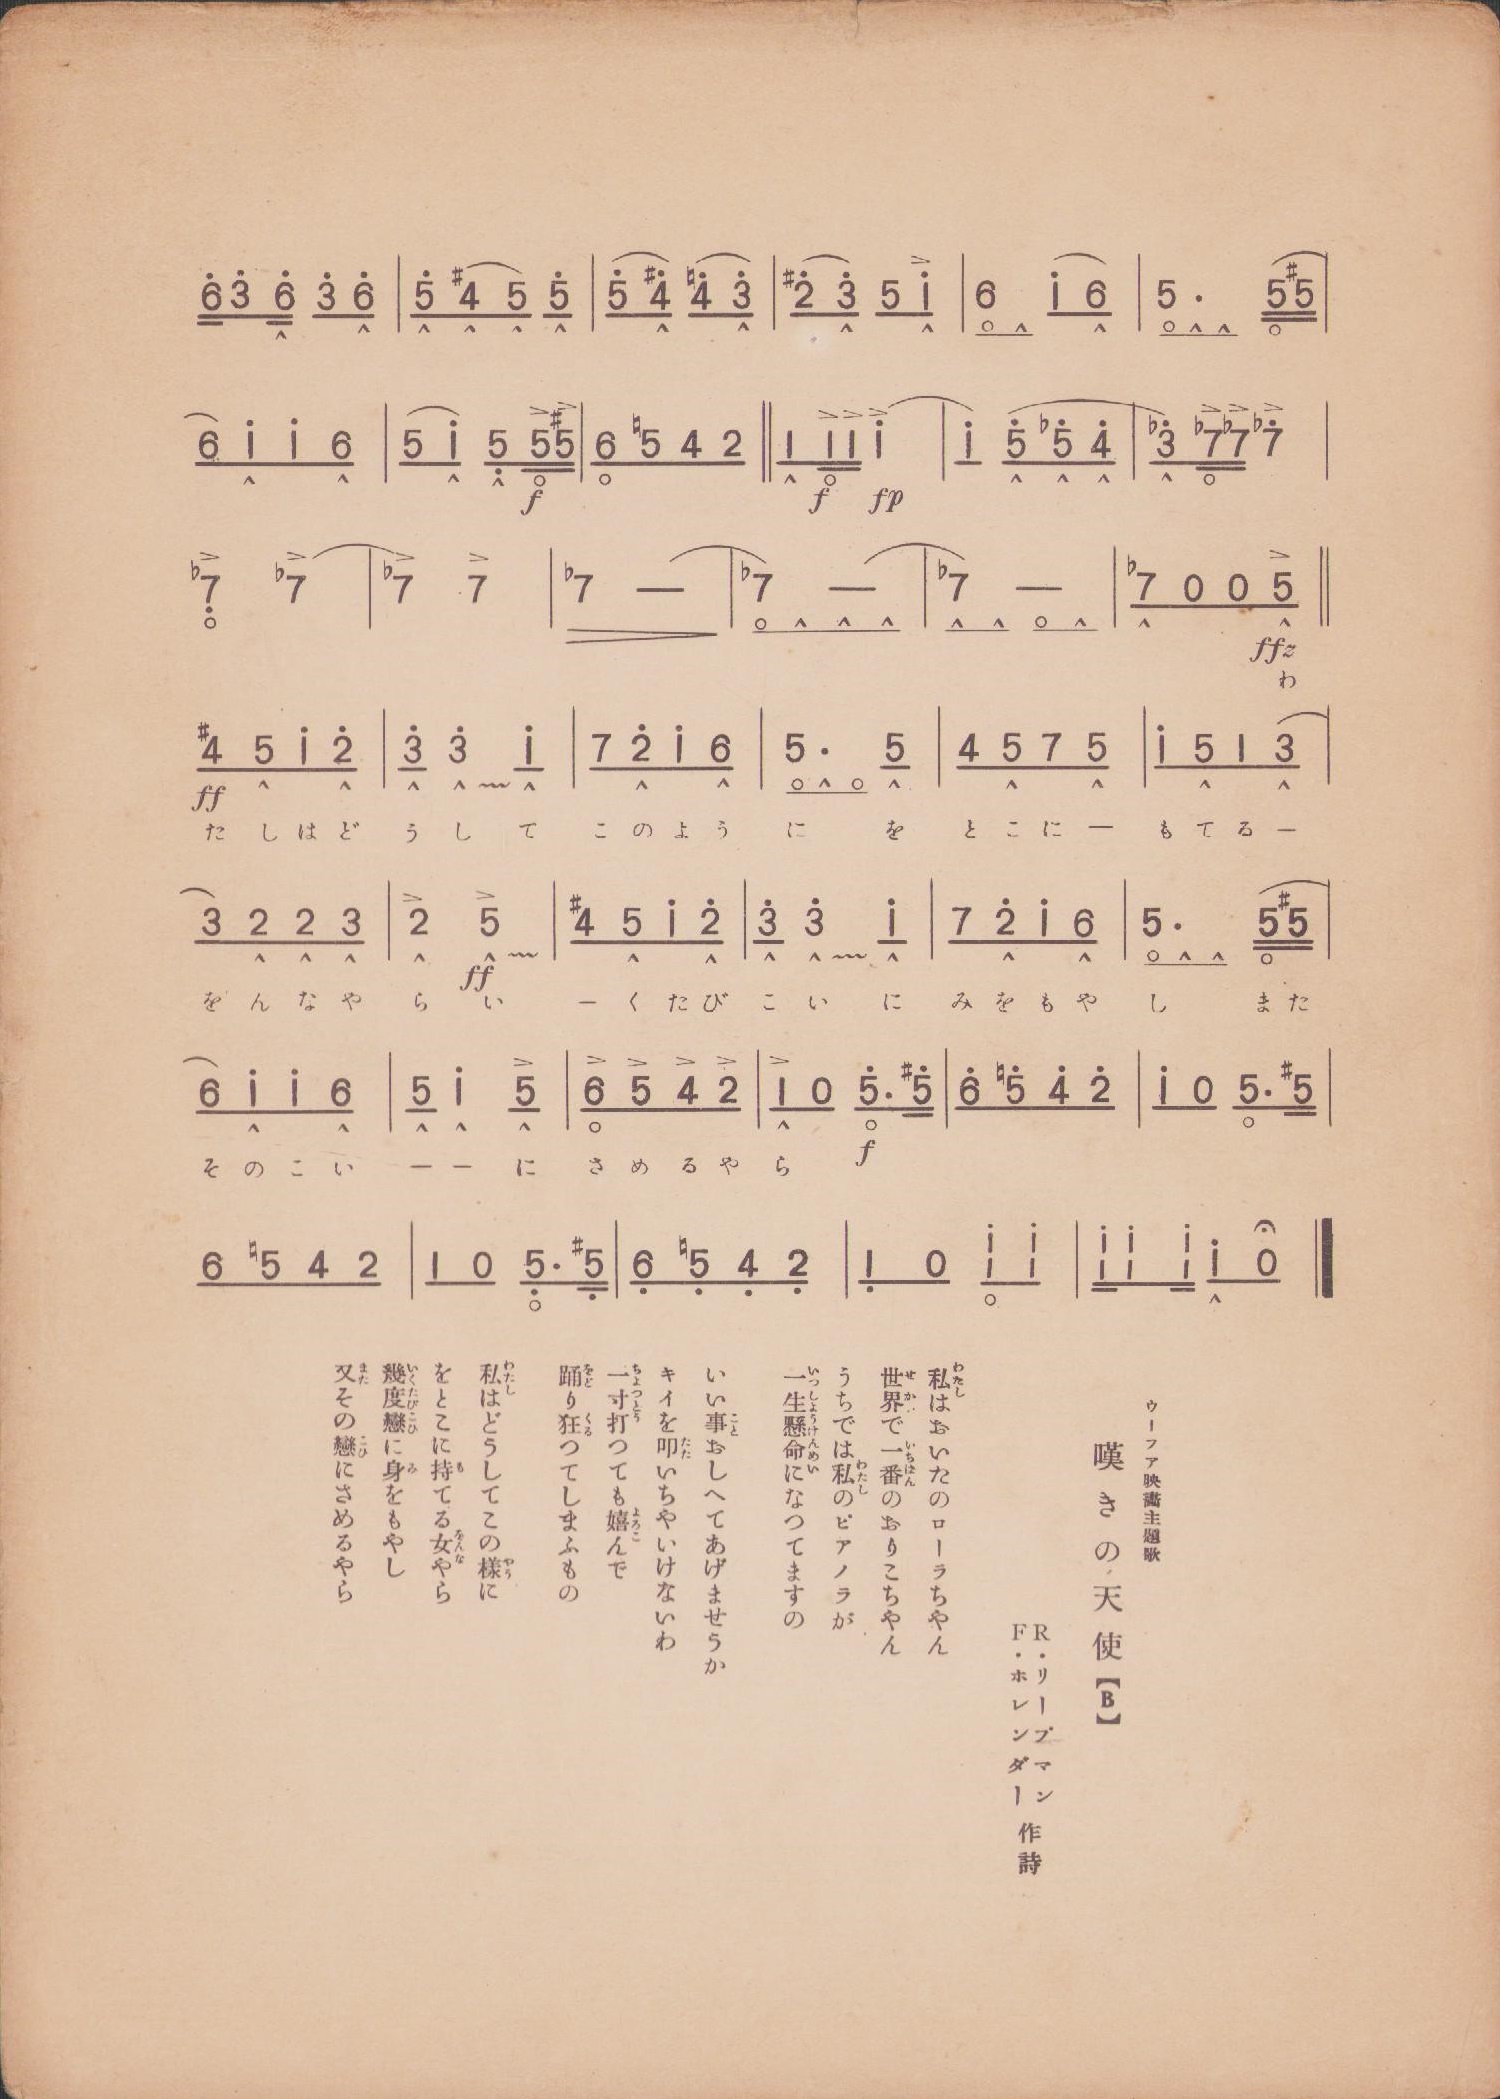 6 3 6 3 6 | 5 #4 5 5 | 5 #4 ♮4 3 | #2 3 5 i | 6 i 6 | 5 · 5 #5 |
6 i i 6 | 5 i 5 5 #5 | 6 ♮5 4 2 || 1 1 1 i | i 5 ♭5 4 | ♭3 ♭7 ♭7 ♭7 |
f f fp
♭7 ♭7 | ♭7 7 | ♭7 — | ♭7 — | ♭7 — | ♭7 0 0 5 ||
ffz
わ
#4 5 i 2 | 3 3 i | 7 2 i 6 | 5 · 5 | 4 5 7 5 | i 5 1 3 |
ff
た しはど う し て このよう に を とこに ー もてる ー
3 2 2 3 | 2 5 | #4 5 i 2 | 3 3 i | 7 2 i 6 | 5 · 5 #5 |
ff
をんなや ら い ー くたび こ い に みをもや し また
6 i i 6 | 5 i 5 | 6 5 4 2 | 1 0 5 · #5 | 6 ♮5 4 2 | i 0 5 · #5 |
f
そのこい ー ー に さめるや ら
6 ♮5 4 2 | 1 0 5 · #5 | 6 ♮5 4 2 | 1 0 i i | i i i i 0
ウーフア映畵主題歌
嘆きの天使【B】
R・リープマン
F・ホレンダー 作詩
私はおいたのローラちやん
世界で一番のおりこちやん
うちでは私のピアノラが
一生懸命になつてますの
いい事おしへてあげませうか
キイを叩いちやいけないわ
一寸打つても嬉んで
踊り狂つてしまふもの
私はどうしてこの樣に
をとこに持てる女やら
幾度戀に身をもやし
又その戀にさめるやら